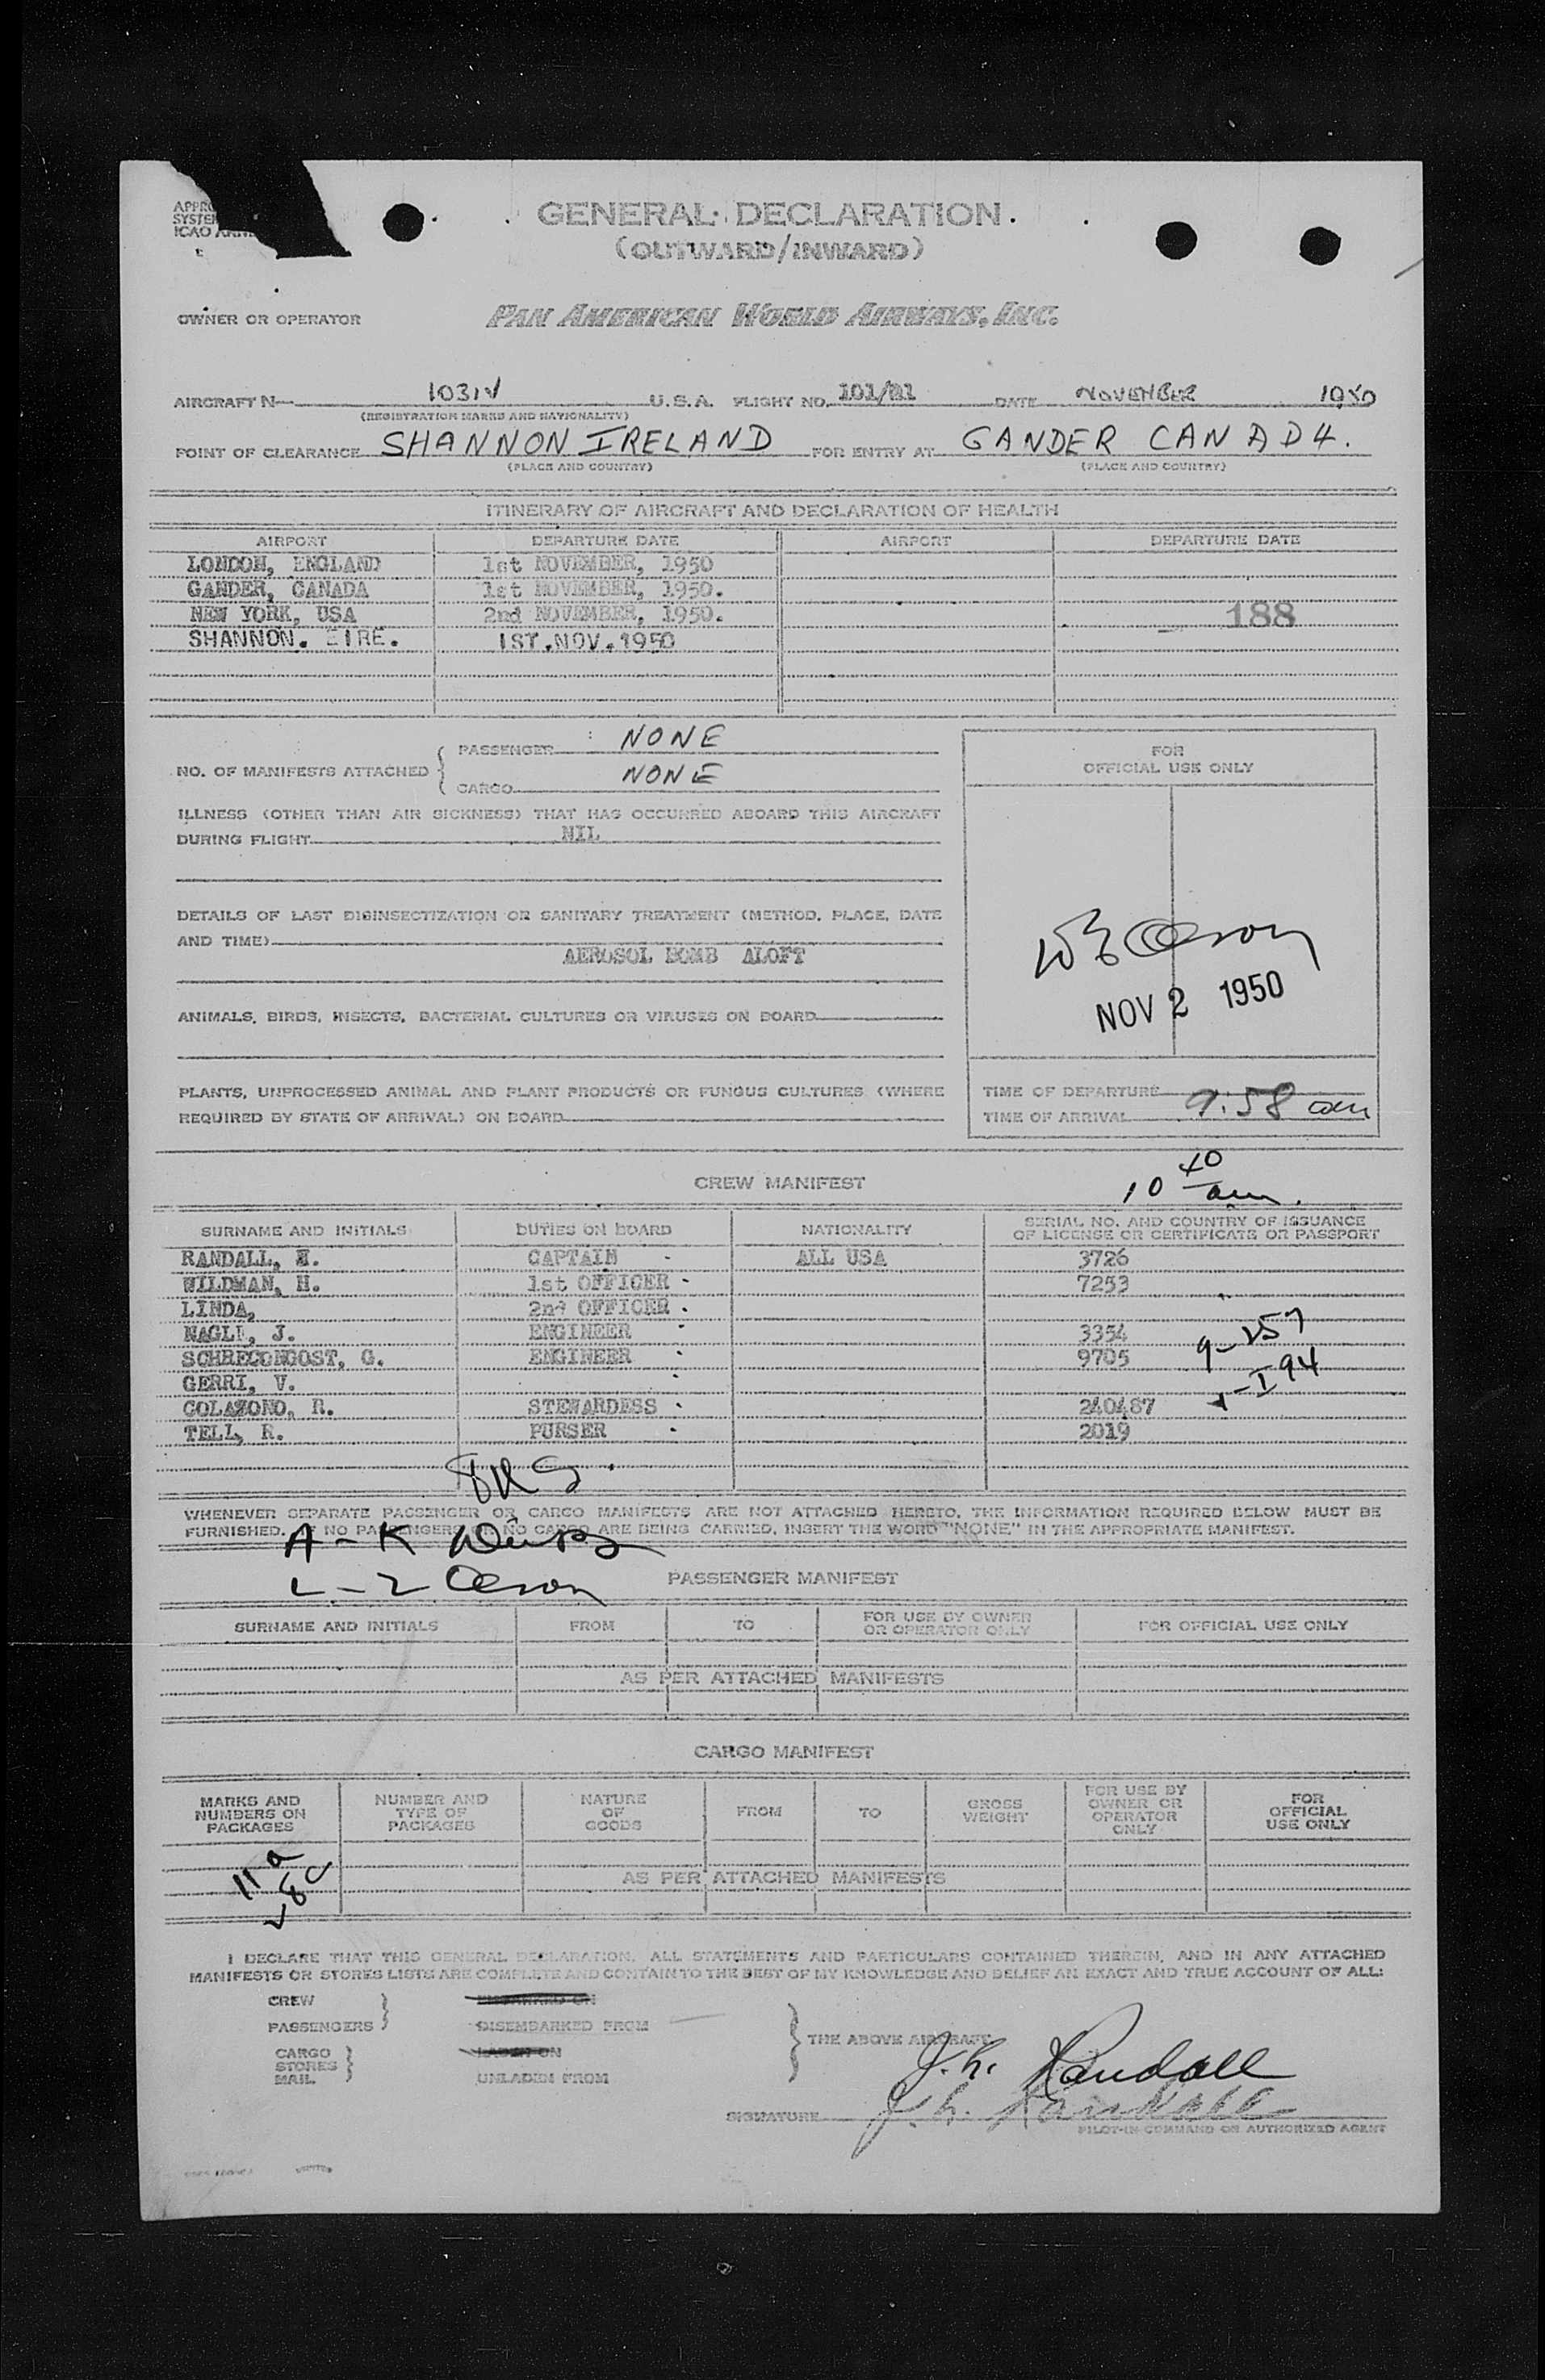 GENERAL DECLARATION
(OUTWARD/INWARD)
OWNER OR OPERATOR PAN AMERICAN WORLD AIRWAYS, INC.
AIRCRAFT N— 1031V U.S.A. FLIGHT NO. 101/21 DATE NOVEMBER 1950
(REGISTRATION MARKS AND NATIONALITY)
POINT OF CLEARANCE SHANNON IRELAND FOR ENTRY AT GANDER CANADA.
(PLACE AND COUNTRY) (PLACE AND COUNTRY)
ITINERARY OF AIRCRAFT AND DECLARATION OF HEALTH
AIRPORT DEPARTURE DATE AIRPORT DEPARTURE DATE
LONDON, ENGLAND 1st NOVEMBER, 1950
GANDER, CANADA 1st NOVEMBER, 1950.
NEW YORK, USA 2nd NOVEMBER, 1950. 188
SHANNON. EIRE. 1ST.NOV.1950
NO. OF MANIFESTS ATTACHED { PASSENGER NONE
CARGO NONE
ILLNESS (OTHER THAN AIR SICKNESS) THAT HAS OCCURRED ABOARD THIS AIRCRAFT
DURING FLIGHT NIL
DETAILS OF LAST DISINSECTIZATION OR SANITARY TREATMENT (METHOD, PLACE, DATE
AND TIME)
AEROSOL BOMB ALOFT
ANIMALS, BIRDS, INSECTS, BACTERIAL CULTURES OR VIRUSES ON BOARD
PLANTS, UNPROCESSED ANIMAL AND PLANT PRODUCTS OR FUNGUS CULTURES (WHERE
REQUIRED BY STATE OF ARRIVAL) ON BOARD
FOR
OFFICIAL USE ONLY
NOV 2 1950
TIME OF DEPARTURE
TIME OF ARRIVAL 9:58 am
10 40 am.
CREW MANIFEST
SURNAME AND INITIALS DUTIES ON BOARD NATIONALITY SERIAL NO. AND COUNTRY OF ISSUANCE
OF LICENSE OR CERTIFICATE OR PASSPORT
RANDALL, CAPTAIN ALL USA 3726
WILDMAN, H. 1st OFFICER 7253
LINDA, 2nd OFFICER
NAGLE, J. ENGINEER 3354
SCHRECONGOST, G. ENGINEER 9705
GERRI, V.
COLAZONO, R. STEWARDESS 240487
TELL, R. PURSER 2019
WHENEVER SEPARATE PASSENGER OR CARGO MANIFESTS ARE NOT ATTACHED HERETO, THE INFORMATION REQUIRED BELOW MUST BE
FURNISHED. IF NO PASSENGERS OR NO CARGO ARE BEING CARRIED, INSERT THE WORD "NONE" IN THE APPROPRIATE MANIFEST.
A - K
L - Z Olson
PASSENGER MANIFEST
SURNAME AND INITIALS FROM TO FOR USE BY OWNER
OR OPERATOR ONLY FOR OFFICIAL USE ONLY
AS PER ATTACHED MANIFESTS
CARGO MANIFEST
MARKS AND
NUMBERS ON
PACKAGES
NUMBER AND
TYPE OF
PACKAGES
NATURE
OF
GOODS
FROM
TO
GROSS
WEIGHT
FOR USE BY
OWNER OR
OPERATOR
ONLY
FOR
OFFICIAL
USE ONLY
11 a
8 c
AS PER ATTACHED MANIFESTS
I DECLARE THAT THIS GENERAL DECLARATION, ALL STATEMENTS AND PARTICULARS CONTAINED THEREIN, AND IN ANY ATTACHED
MANIFESTS OR STORES LISTS ARE COMPLETE AND CONTAIN TO THE BEST OF MY KNOWLEDGE AND BELIEF AN EXACT AND TRUE ACCOUNT OF ALL:
CREW
PASSENGERS } DISEMBARKED FROM
CARGO
STORES
MAIL } UNLADEN FROM
} THE ABOVE AIRCRAFT
J.h. Randall
SIGNATURE J.h. Randall
PILOT-IN-COMMAND OR AUTHORIZED AGENT